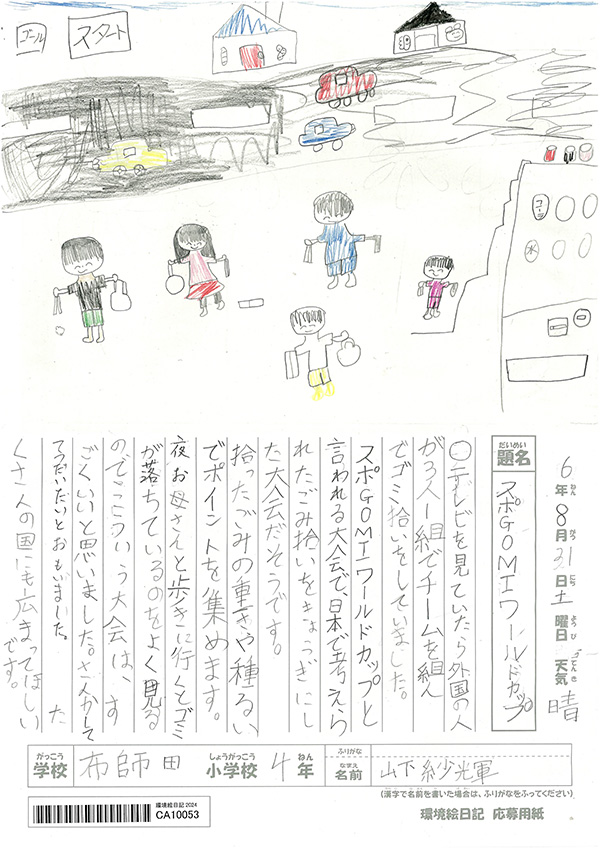 ゴール
スタート
コーラ
水
6年8月31日土曜日 天気 晴
ねん がつ にち ようび てんき
だいめい
題名
スポGOMIワールドカップ
○テレビを見ていたら外国の人
が3人1組でチームを組ん
でゴミ拾いをしていました。
スポGOMIワールドカップと
言われる大会で、日本で考えら
れたごみ拾いをきょうぎにし
た大会だそうです。
拾ったごみの重さや種るい
でポイントを集めます。
夜お母さんと歩きに行くとゴミ
が落ちているのをよく見る
のでこういう大会は、す
ごくいいと思いました。さんかして
てつだいたいとおもいました。 た
くさんの国にも広まってほしい
です。
がっこう しょうがっこう ねん
学校 布師田 小学校 4年
ふりがな
なまえ
名前 山下紗光軍
(漢字で名前を書いた場合は、ふりがなをふってください)
環境絵日記 2024
CA10053
環境絵日記 応募用紙